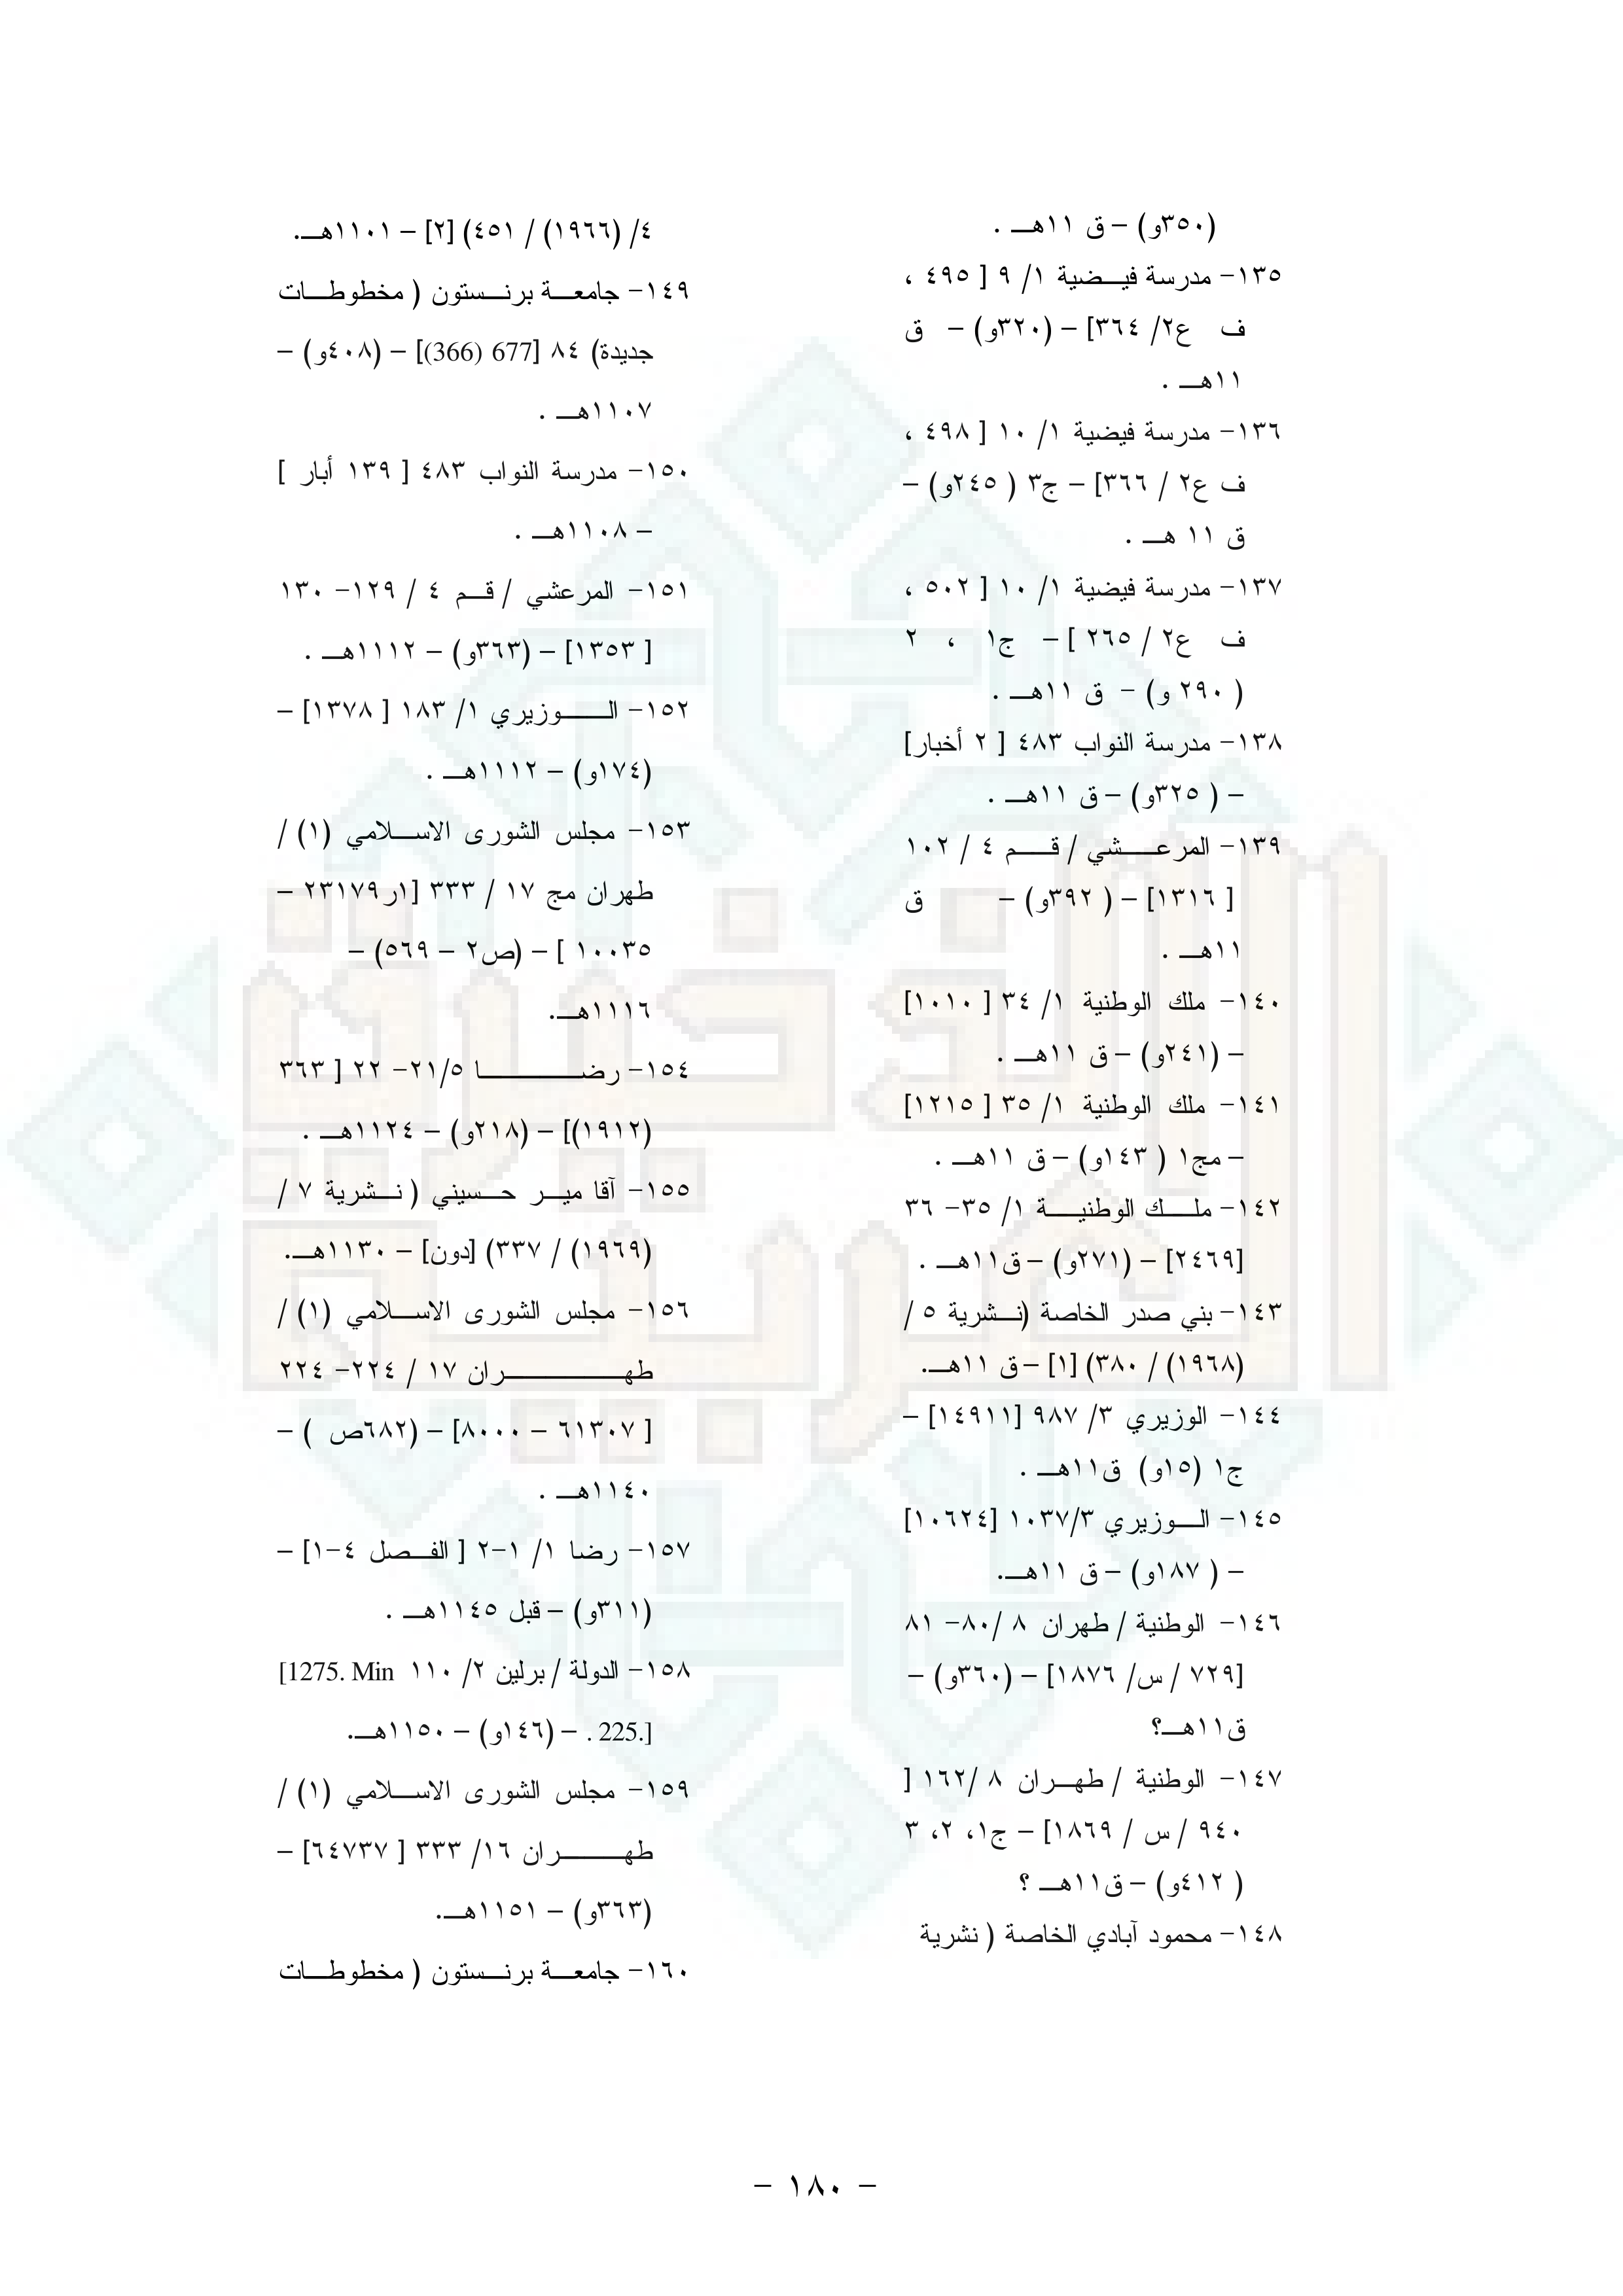 (٣٥٠و) – ق ١١هـ .
١٣٥- مدرسة فيضية ١/ ٩ [ ٤٩٥ ،
ف ع٢/ ٣٦٤] – (٣٢٠و) – ق
١١هـ .
١٣٦- مدرسة فيضية ١/ ١٠ [ ٤٩٨ ،
ف ع٢ / ٣٦٦] – ج٣ ( ٢٤٥و) –
ق ١١ هـ .
١٣٧- مدرسة فيضية ١/ ١٠ [ ٥٠٢ ،
ف ع٢ / ٢٦٥ ] – ج١ ، ٢
( ٢٩٠ و) – ق ١١هـ .
١٣٨- مدرسة النواب ٤٨٣ [ ٢ أخبار]
– ( ٣٢٥و) – ق ١١هـ .
١٣٩- المرعشي / قم ٤ / ١٠٢
[ ١٣١٦] – ( ٣٩٢و) – ق
١١هـ .
١٤٠- ملك الوطنية ١/ ٣٤ [ ١٠١٠]
– (٢٤١و) – ق ١١هـ .
١٤١- ملك الوطنية ١/ ٣٥ [ ١٢١٥]
– مج١ ( ١٤٣و) – ق ١١هـ .
١٤٢- ملك الوطنية ١/ ٣٥- ٣٦
[٢٤٦٩] – (٢٧١و) – ق١١هـ .
١٤٣- بني صدر الخاصة (نشرية ٥ /
(١٩٦٨) / ٣٨٠) [١] – ق ١١هـ.
١٤٤- الوزيري ٣/ ٩٨٧ [١٤٩١١] –
ج١ (١٥و) ق١١هـ .
١٤٥- الوزيري ٣/ ١٠٣٧ [١٠٦٢٤]
– ( ١٨٧و) – ق ١١هـ.
١٤٦- الوطنية / طهران ٨ /٨٠- ٨١
[٧٢٩ / س/ ١٨٧٦] – (٣٦٠و) –
ق١١هـ؟
١٤٧- الوطنية / طهران ٨ /١٦٢ [
٩٤٠ / س / ١٨٦٩] – ج١، ٢، ٣
( ٤١٢و) – ق١١هـ ؟
١٤٨- محمود آبادي الخاصة ( نشرية
٤/ (١٩٦٦) / ٤٥١) [٢] – ١١٠١هـ.
١٤٩- جامعة برنستون ( مخطوطات
جديدة) ٨٤ [677 (366)] – (٤٠٨و) –
١١٠٧هـ .
١٥٠- مدرسة النواب ٤٨٣ [ ١٣٩ أبار ]
– ١١٠٨هـ .
١٥١- المرعشي / قم ٤ / ١٢٩- ١٣٠
[ ١٣٥٣] – (٣٦٣و) – ١١١٢هـ .
١٥٢- الوزيري ١/ ١٨٣ [ ١٣٧٨] –
(١٧٤و) – ١١١٢هـ .
١٥٣- مجلس الشورى الاسلامي (١) /
طهران مج ١٧ / ٣٣٣ [ار٢٣١٧٩ –
١٠٠٣٥ ] – (ص٢ – ٥٦٩) –
١١١٦هـ.
١٥٤- رضا ٢١/٥- ٢٢ [ ٣٦٣
(١٩١٢)] – (٢١٨و) – ١١٢٤هـ .
١٥٥- آقا مير حسيني ( نشرية ٧ /
(١٩٦٩) / ٣٣٧) [دون] – ١١٣٠هـ.
١٥٦- مجلس الشورى الاسلامي (١) /
طهران ١٧ / ٢٢٤- ٢٢٤
[ ٦١٣٠٧ – ٨٠٠٠] – (٦٨٢ص ) –
١١٤٠هـ .
١٥٧- رضا ١/ ١-٢ [ الفصل ٤-١] –
(٣١١و) – قبل ١١٤٥هـ .
١٥٨- الدولة / برلين ٢/ ١١٠ [1275. Min
.225 . – (١٤٦و) – ١١٥٠هـ.]
١٥٩- مجلس الشورى الاسلامي (١) /
طهران ١٦/ ٣٣٣ [ ٦٤٧٣٧] –
(٣٦٣و) – ١١٥١هـ.
١٦٠- جامعة برنستون ( مخطوطات
– ١٨٠ –